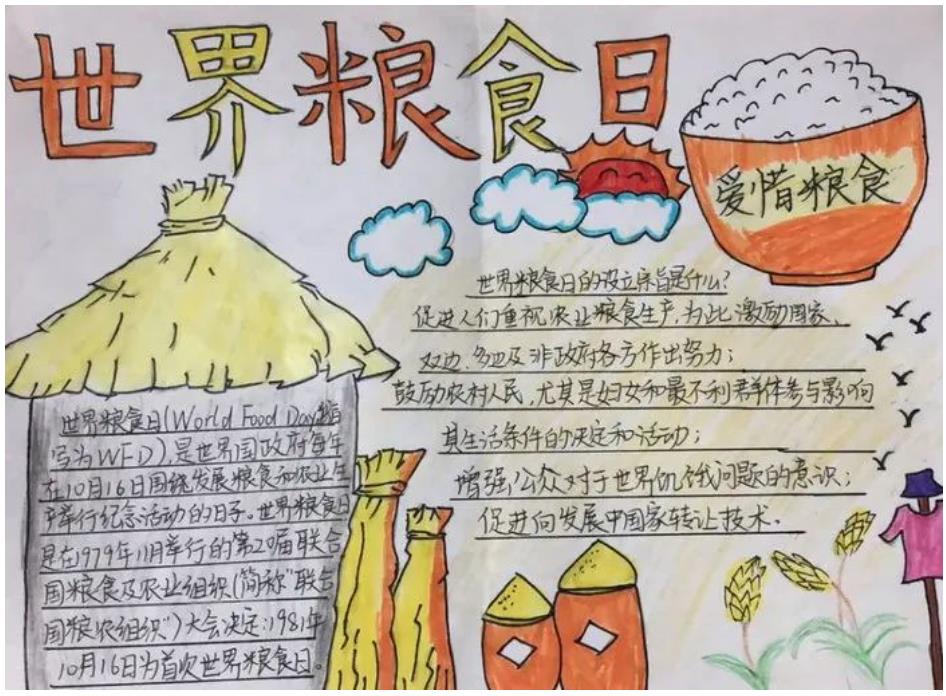 世界粮食日
爱惜粮食
世界粮食日(World Food Day,缩
写为WFD),是世界国政府每年
在10月16日围绕发展粮食和农业生
产举行纪念活动的日子。世界粮食日
是在1979年11月举行的第20届联合
国粮食及农业组织(简称“联合
国粮农组织”)大会决定:1981年
10月16日为首次世界粮食日。
世界粮食日的设立宗旨是什么?
促进人们重视农业粮食生产,为此激励国家、
双边、多边及非政府各方作出努力;
鼓励农村人民,尤其是妇女和最不利群体参与影响
其生活条件的决定和活动;
增强公众对于世界饥饿问题的意识;
促进向发展中国家转让技术。